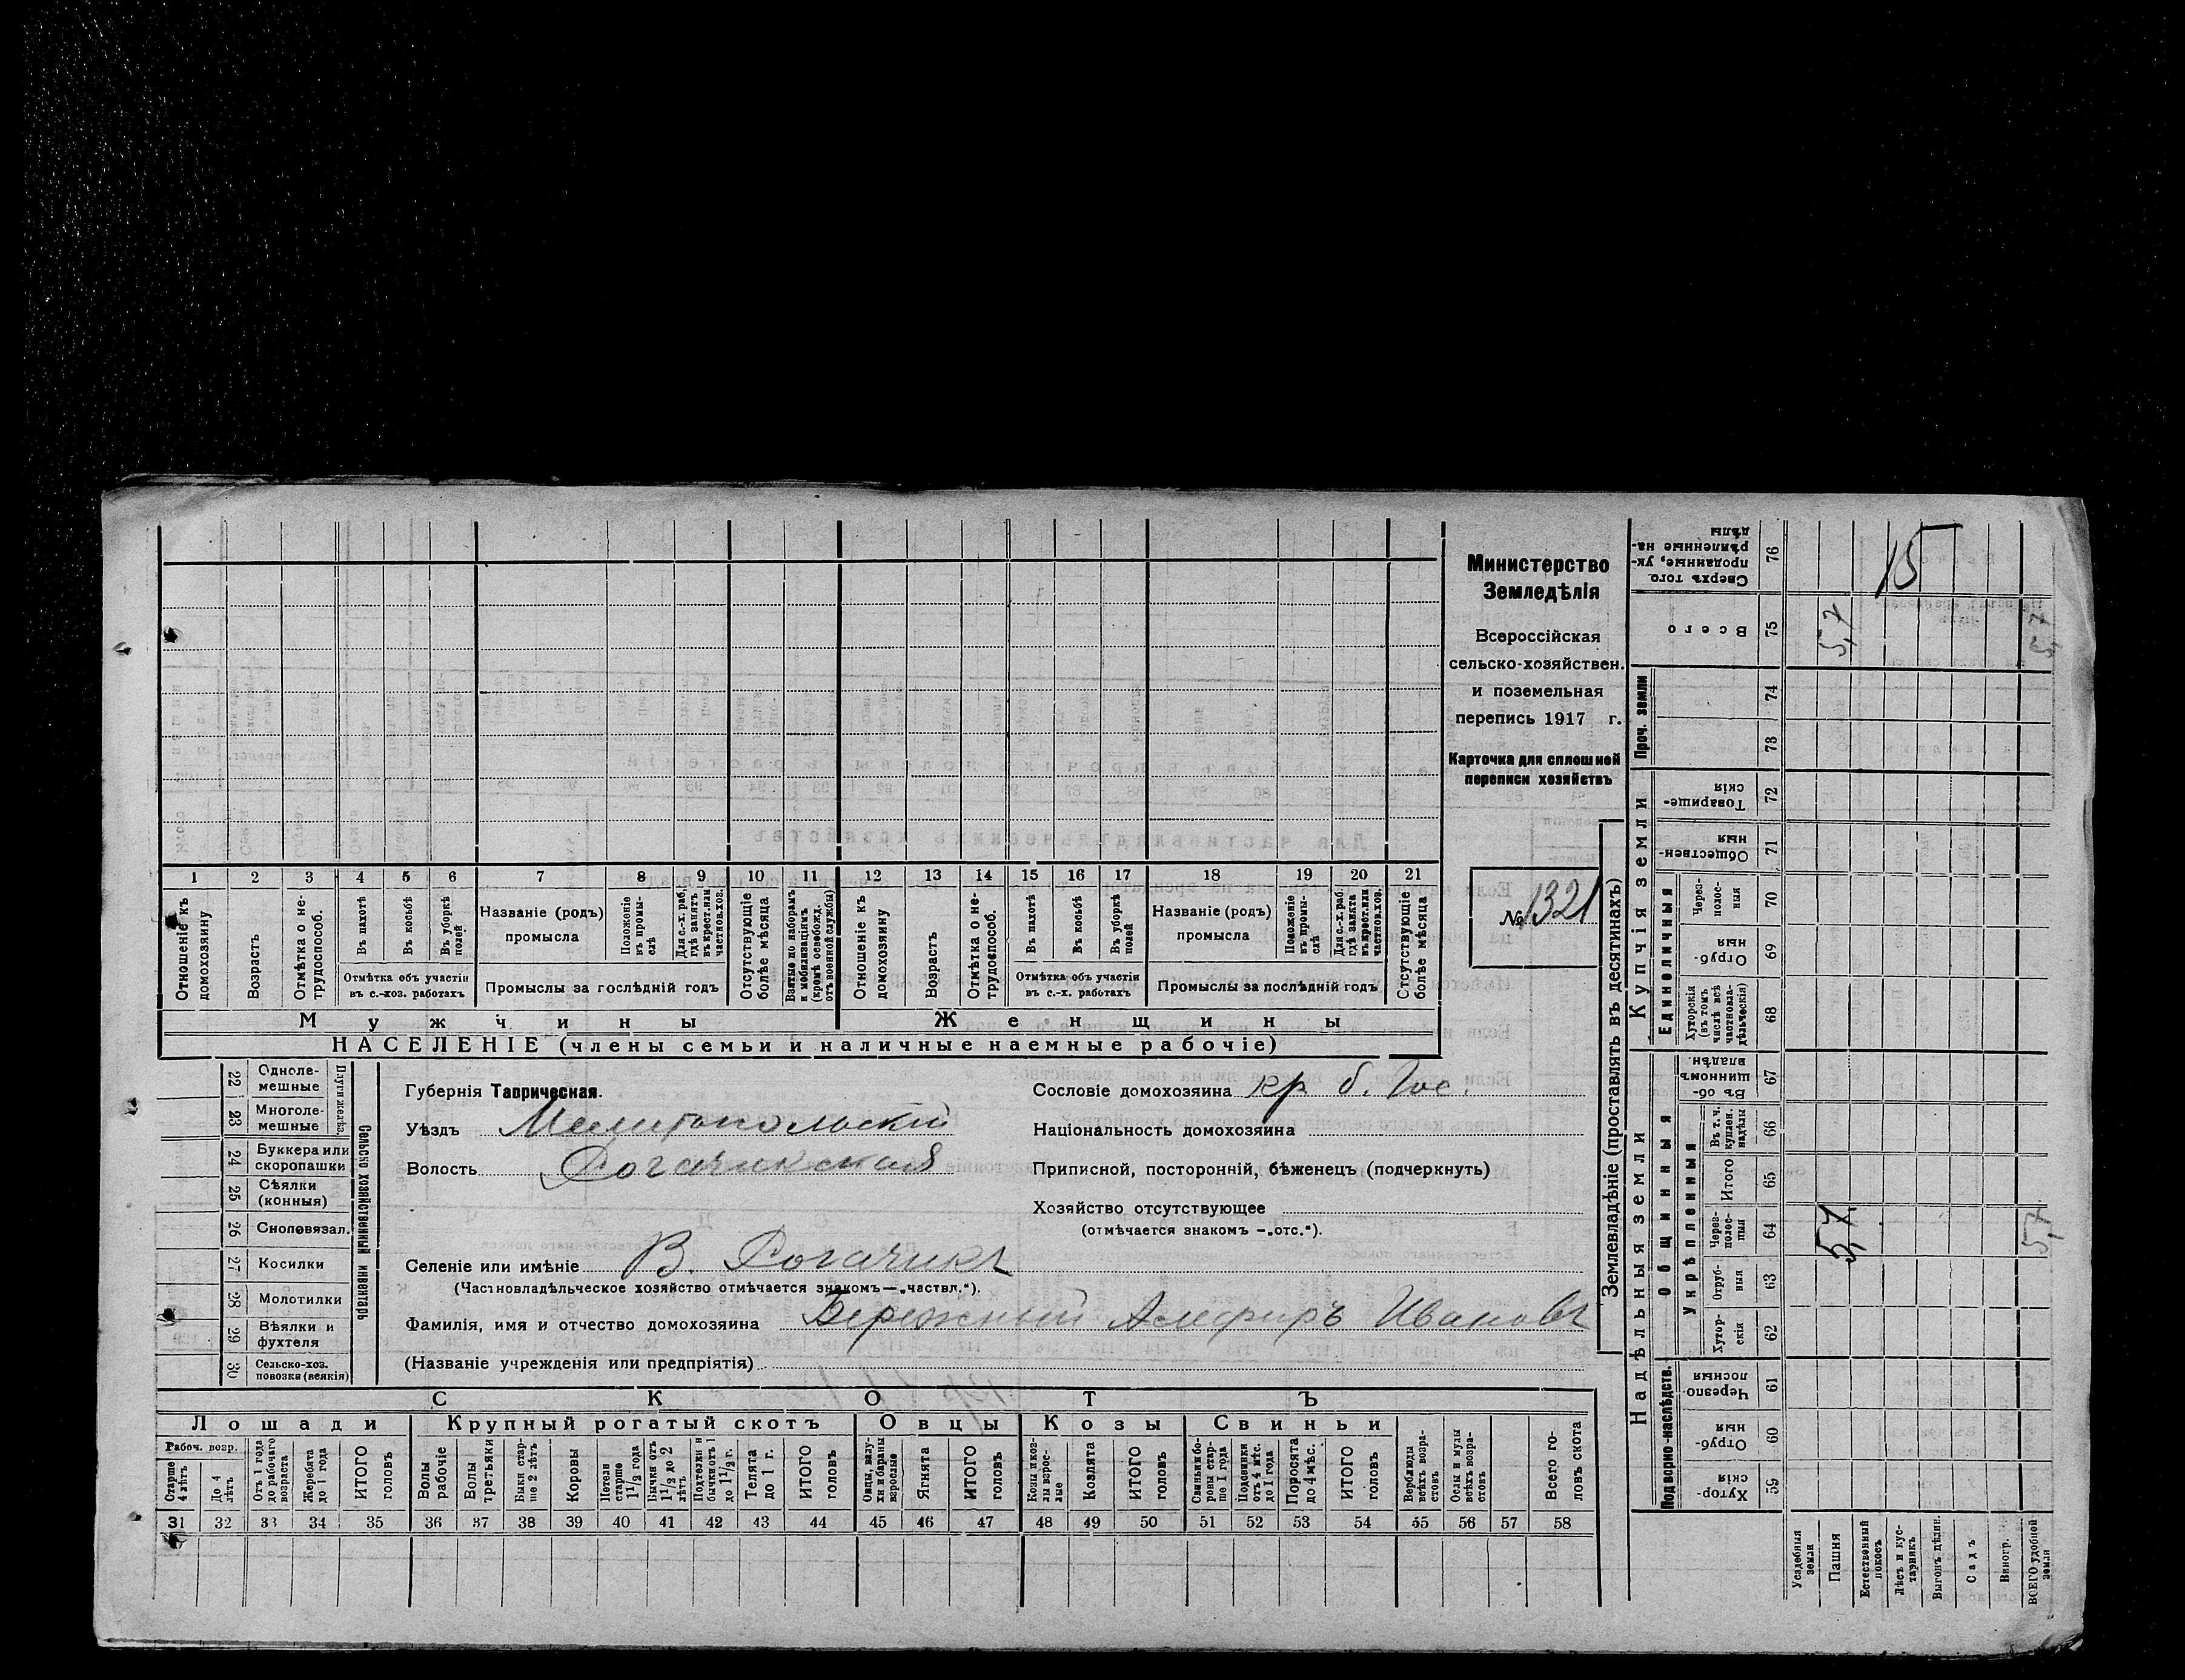 Министерство
Земледѣлія
Всероссійская
сельско-хозяйствен.
и поземельная
перепись 1917 г.
Карточка для сплошной
переписи хозяйствъ
№ 1321
1 2 3 4 5 6 7 8 9 10 11 12 13 14 15 16 17 18 19 20 21
Отношеніе къ домохозяину
Возрастъ
Отмѣтка о не-трудоспособ.
Въ пахотѣ
Въ косьбѣ
Въ уборкѣ полей
Отмѣтка объ участіи
въ с.-хоз. работахъ
Названіе (родъ)
промысла
Положеніе въ промы-слѣ
Для с.-х. раб. гдѣ занятъ въ крест. или частнов. хоз.
Промыслы за послѣдній годъ
Отсутствующіе болѣе мѣсяца
Взятые по наборамъ и мобилизаціямъ (кромѣ освобожд. отъ военной службы)
Отношеніе къ домохозяину
Возрастъ
Отмѣтка о не-трудоспособ.
Въ пахотѣ
Въ косьбѣ
Въ уборкѣ полей
Отмѣтка объ участіи
въ с.-х. работахъ
Названіе (родъ)
промысла
Положеніе въ промы-слѣ
Для с.-х. раб. гдѣ занята въ крест. или частнов. хоз.
Промыслы за послѣдній годъ
Отсутствующіе болѣе мѣсяца
Мужчины
Женщины
НАСЕЛЕНІЕ (члены семьи и наличные наемные рабочіе)
22 Одноле-мешные
23 Многоле-мешные
Плуги желѣз.
24 Буккера или скоропашки
25 Сѣялки (конныя)
26 Сноповязал.
27 Косилки
28 Молотилки
29 Вѣялки и фухтеля
30 Сельско-хоз. повозки (всякія)
Сельско хозяйственный инвентарь
Губернія Таврическая.
Уѣздъ Мелитопольскій
Волость Рогачикская
Селеніе или имѣніе В. Рогачикъ
(Частновладѣльческое хозяйство отмѣчается знакомъ—„частвл.“).
Фамилія, имя и отчество домохозяина Бережный Алефиръ Ивановъ
(Названіе учрежденія или предпріятія)
Сословіе домохозяина кр. б. Гос.
Національность домохозяина
Приписной, посторонній, бѣженецъ (подчеркнуть)
Хозяйство отсутствующее
(отмѣчается знакомъ —„отс.“).
СКОТЪ
Лошади Крупный рогатый скотъ Овцы Козы Свиньи
Рабоч. возр.
Старше 4 лѣтъ
До 4 лѣтъ
Отъ 1 года до рабочаго возраста
Жеребята до 1 года
ИТОГО головъ
Волы рабочіе
Волы третьяки
Быки стар-ше 2 лѣтъ
Коровы
Нетели старше 1 1/2 года
Бычки отъ 1 1/2 до 2 лѣтъ
Подтелки и бычки отъ 1 до 1 1/2 г.
Телята до 1 г.
ИТОГО головъ
Овцы, валу-хи и бараны взрослые
Ягнята
ИТОГО головъ
Козы и коз-лы взрос-лые
Козлята
ИТОГО головъ
Свиньи и бо-ровы стар-ше 1 года
Подсвинки отъ 4 мѣс. до 1 года
Поросята до 4 мѣс.
ИТОГО головъ
Верблюды всѣхъ возра-стовъ
Ослы и мулы всѣхъ возра-стовъ
Всего го-ловъ скота
31 32 33 34 35 36 37 38 39 40 41 42 43 44 45 46 47 48 49 50 51 52 53 54 55 56 57 58
Землевладѣніе (проставлять въ десятинахъ)
Надѣльныя земли
Купчія земли
Проч. земли
Подворно-наслѣдств.
Общинныя
Укрѣпленныя
Единоличныя
Сверхъ того проданные, ук-рѣпленные на-дѣлы 76 15
Всего 75 5,7 5,7
74
73
Товарище-скія 72
Обществен-ныя 71
Через-полос-ныя 70
Отруб-ныя 69
Хуторскія (въ томъ числѣ всѣ частновла-дѣльческія) 68
Въ об-щинномъ владѣн. 67
Въ т. ч. куплен. надѣлы 66
Итого 65
Через-полос-ныя 64 5,7 5,7
Отруб-ныя 63
Хутор-скія 62
Черезпо-лосныя 61
Отруб-ныя 60
Хутор-скія 59
Усадебныя земли
Пашня
Естественный покосъ
Лѣсъ и кус-тарникъ
Выгонъ дѣлин.
Садъ
Виногр.
ВСЕГО удобной земли